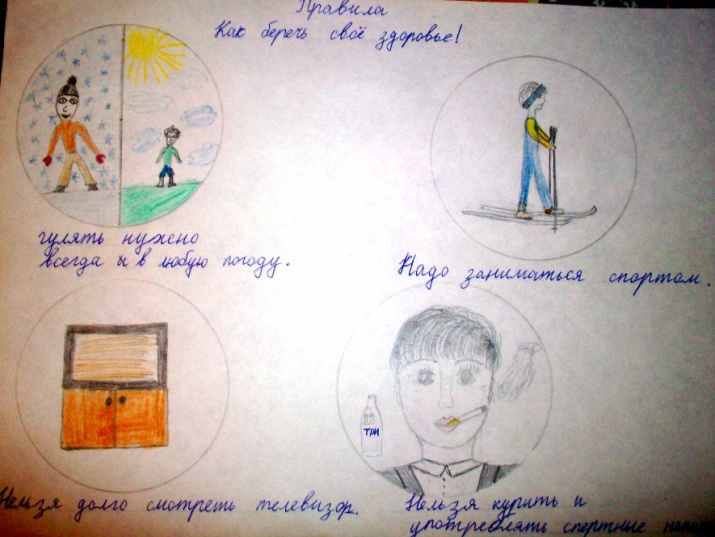 Правила
Как беречь своё здоровье!
гулять нужно
всегда и в любую погоду.
Надо заниматься спортом.
ТРИ
Нельзя долго смотреть телевизор.
Нельзя курить и
употреблять спертные